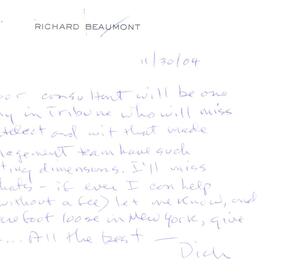 RICHARD BEAUMONT
11/30/04
consultant will be one
in Tribune who will miss
and wit that made
team have such
dimensions. I'll miss
- if ever I can help
without a fee) let me know, and
foot loose in New York, give
.... All the best -
Dick